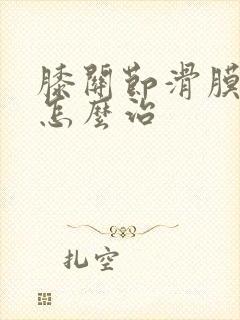 膝關節滑膜
怎麼治
扎空